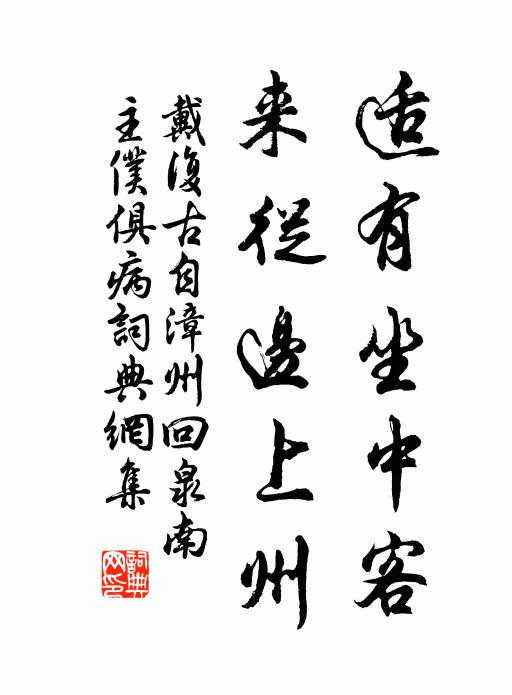 适有坐中客
来從邊上州
戴復古自漳州回泉南
主僕俱病詞典網集
詞典
网印